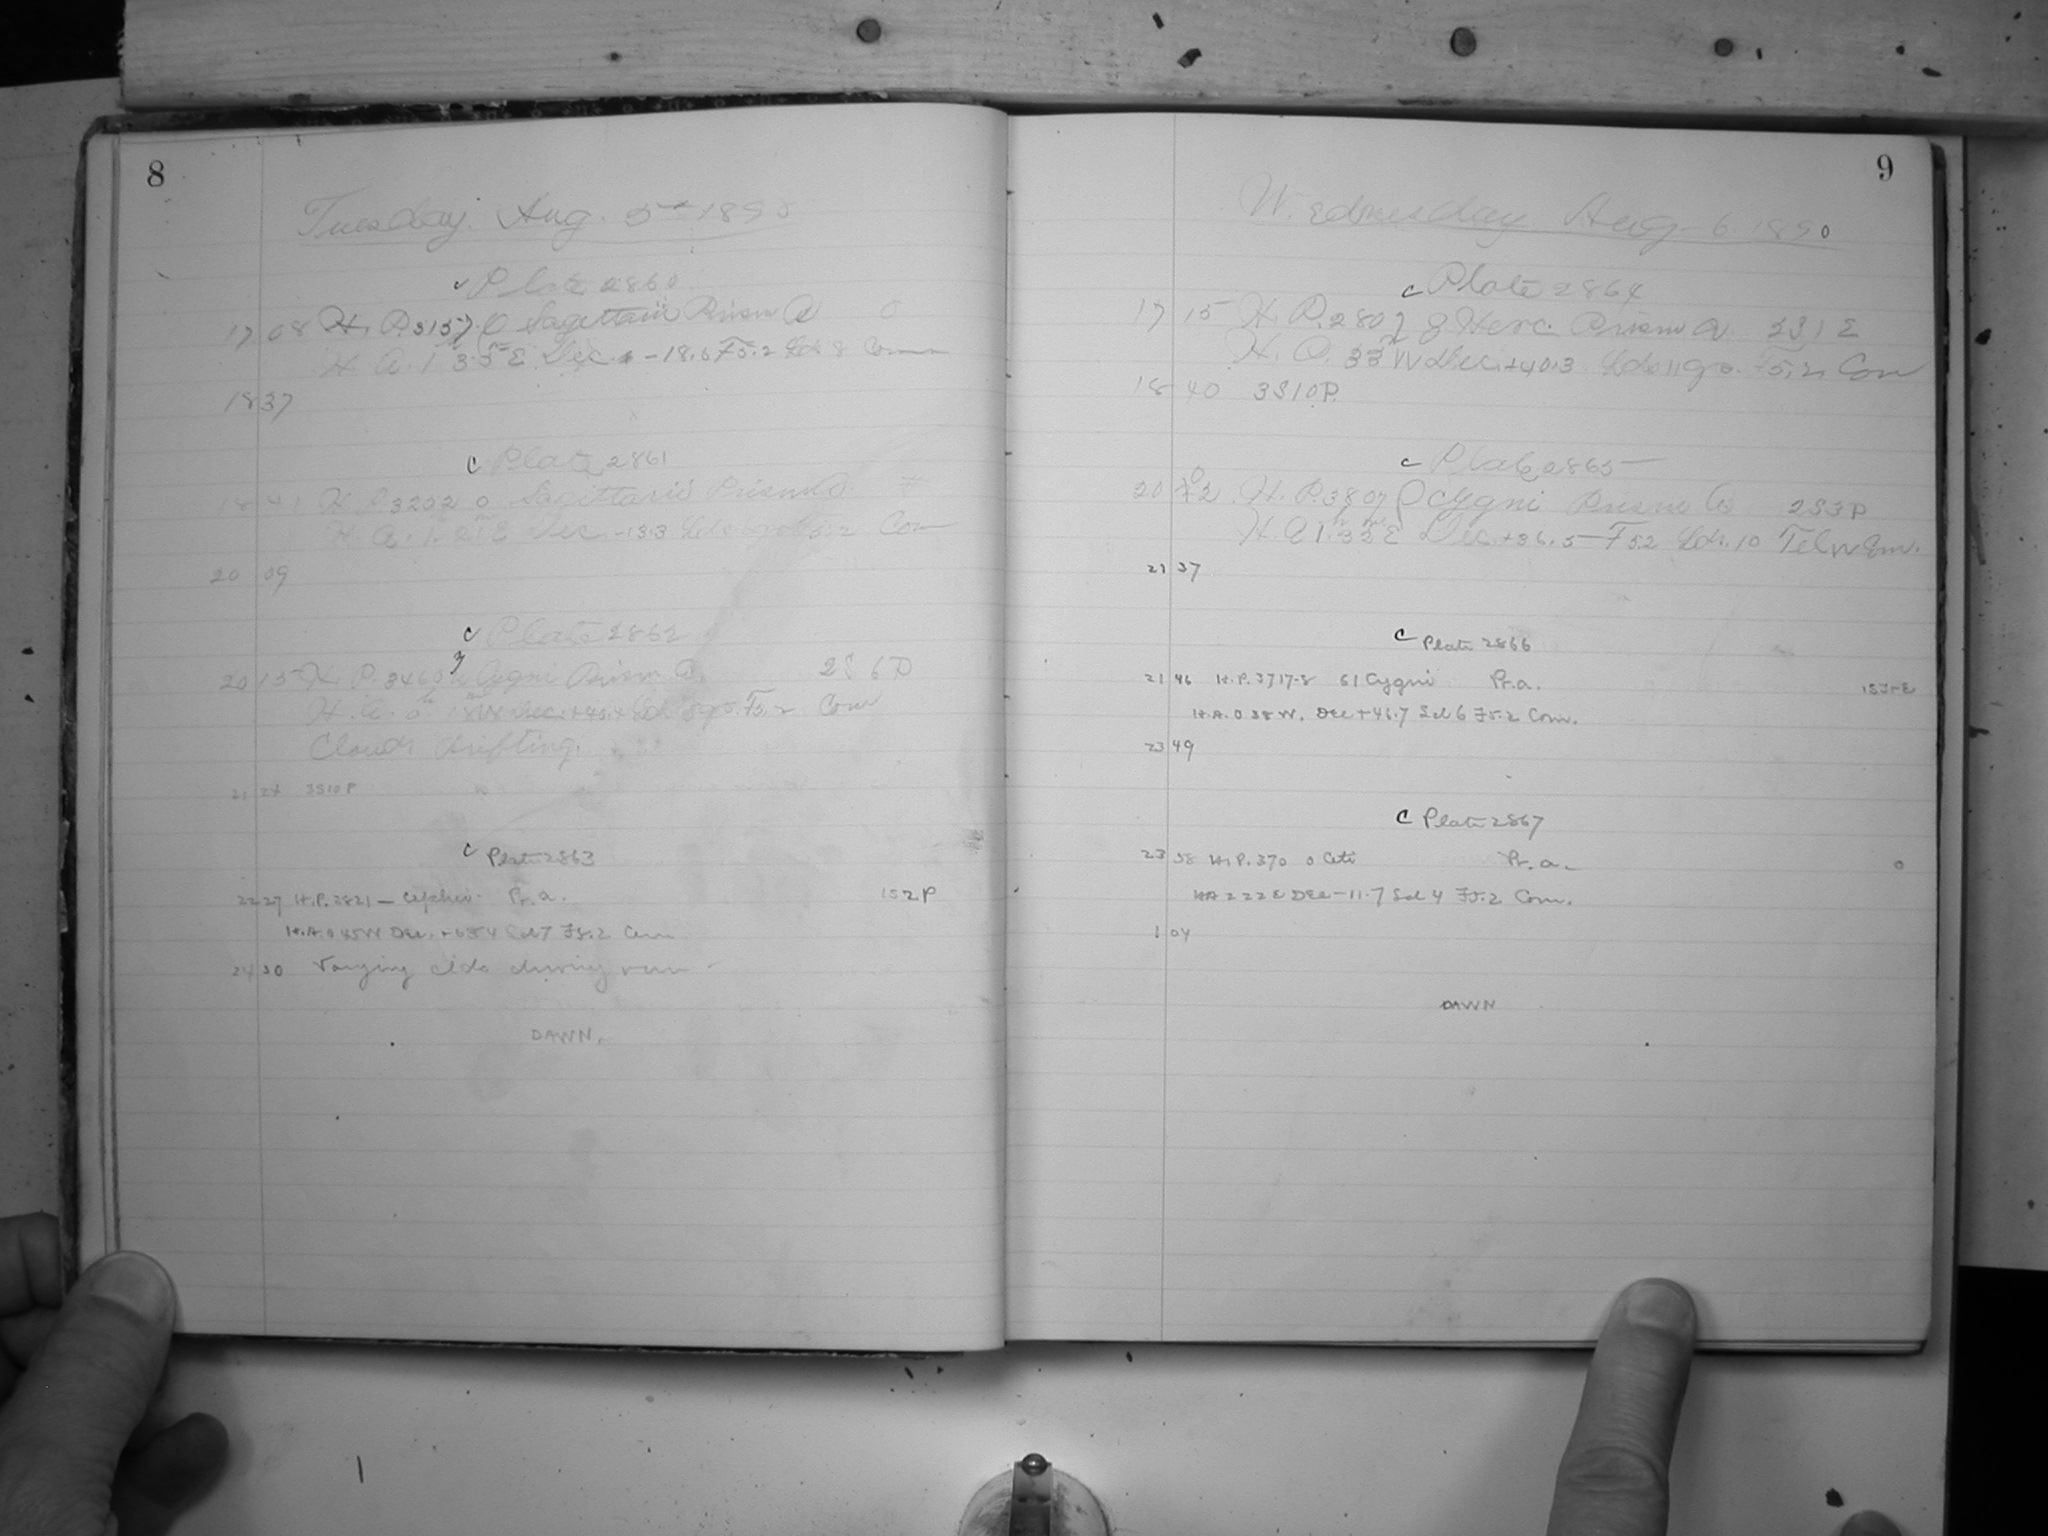 8
Tuesday. Aug. 5 1890
c Plate 2860
17 08 H. P. 3157 Sagittarii Prism A 0
H. A. 1 35 E Dec. -18.6 F5.2 8 Com
18 37
c Plate 2861
18 41 H. P. 3202 o Sagittarii Prism A
H. A. 1 E Dec. -13.3 Com
20 09
c Plate 2862
20 15 H. P. 3460 Cygni Prism A. 2S 6P
H. A. 0h W Dec. F5.2 Com
Clouds drifting.
21 3S10P
c Plate 2863
22 27 H.P. 3821 — Cephei - Pr. a. 1S2P
H.A. 0 45W Dec. +65.4 Sd 7 F5.2 Com
24 30 Varying clds during run -
DAWN.
9
Wednesday Aug. 6 1890
c Plate 2864
17 15 H. P. 2807 g Herc. Prism A. 3S1E
H. A. 33m W Dec. +40.3 F5.2. Com
18 40 3S10P.
c Plate 2865
20 02 H. P. 3807 ρ Cygni Prism A 2S3P
H. A 1h 35m E Dec. +36.5 F5.2 10 Tel W Em.
21 37
c Plate 2866
21 46 H.P. 3717-8 61 Cygni Pr. a.
H.A. 0 38 W. Dec +46.7 Sd 6 F5.2 Com.
23 49
c Plate 2867
23 58 H.P. 370 o Ceti Pr. a. 0
HA 2 22 E Dec -11.7 Sd 4 F5.2 Com.
1 04
DAWN